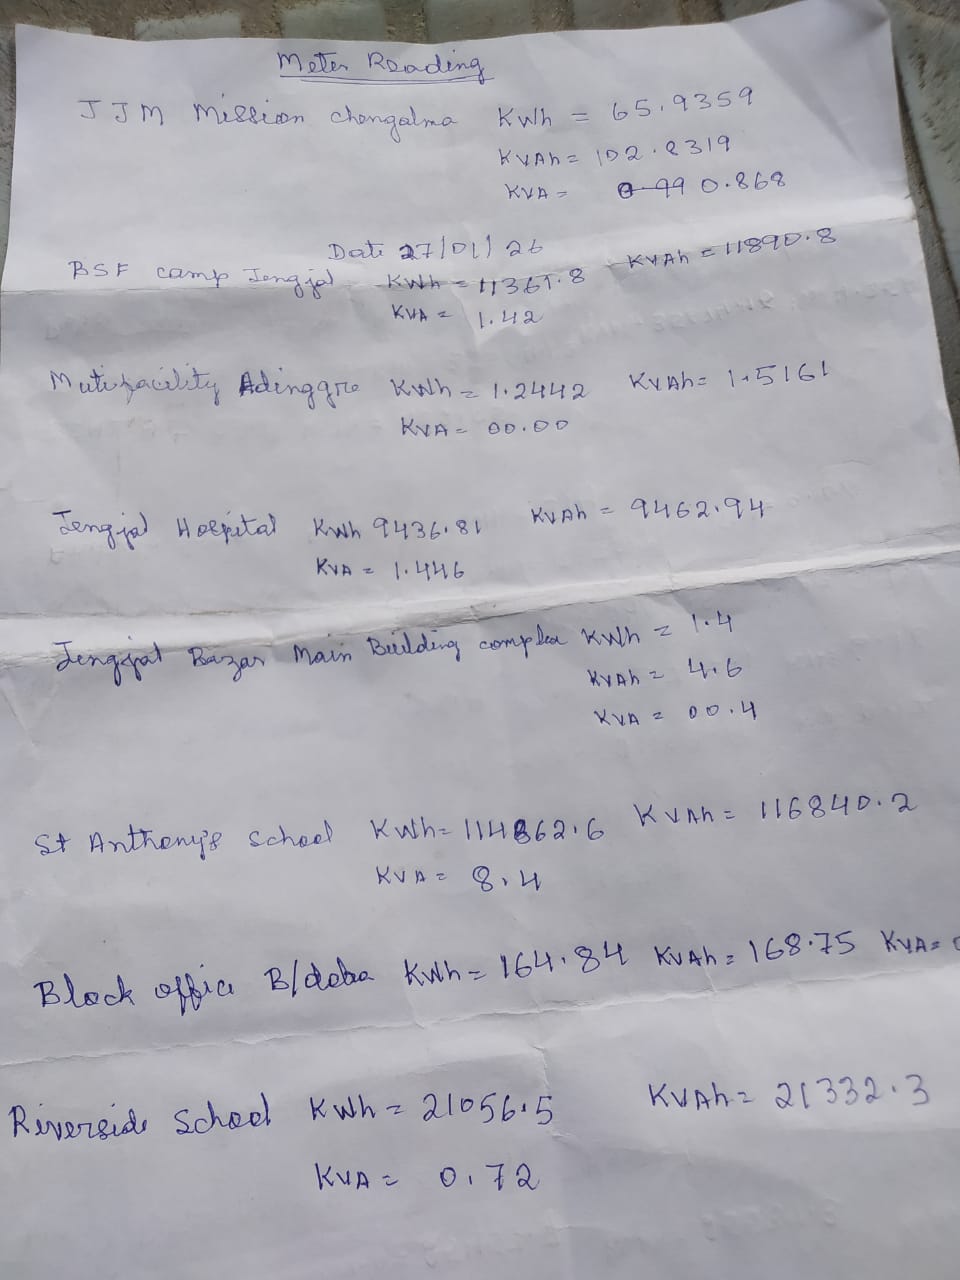 Meter Reading
JJM Mission Chengalma KWh = 65.9359
KVAh = 102.8319
KVA = 990.868
Date 27/01/26
BSF camp Jengjal KWh = 11367.8 KVAh = 11890.8
KVA = 1.42
Mutifacility Adinggre KWh = 1.2442 KVAh = 1.5161
KVA = 00.00
Jengjal Hospital KWh 9436.81 KVAh = 9462.94
KVA = 1.446
Jengjal Bazar Main Building complex KWh = 1.4
KVAh = 4.6
KVA = 00.4
St Anthony's School KWh = 114862.6 KVAh = 116840.2
KVA = 8.4
Block office B/deba KWh = 164.84 KVAh = 168.75 KVA =
Riverside School KWh = 21056.5 KVAh = 21332.3
KVA = 0.72